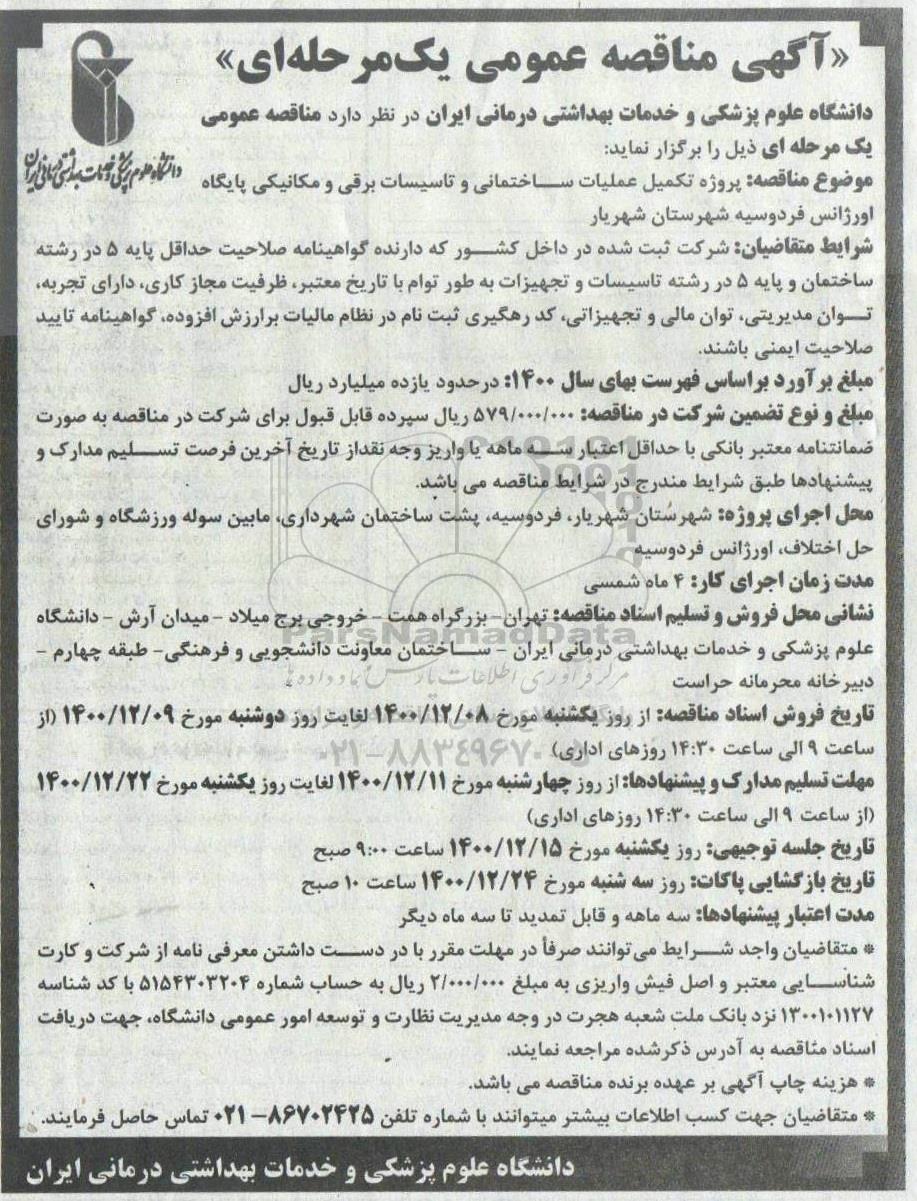 «آگهی مناقصه عمومی یک‌مرحله‌ای»
دانشگاه علوم پزشکی و خدمات بهداشتی درمانی ایران
دانشگاه علوم پزشکی و خدمات بهداشتی درمانی ایران در نظر دارد مناقصه عمومی
یک مرحله ای ذیل را برگزار نماید:
موضوع مناقصه: پروژه تکمیل عملیات ساختمانی و تاسیسات برقی و مکانیکی پایگاه
اورژانس فردوسیه شهرستان شهریار
شرایط متقاضیان: شرکت ثبت شده در داخل کشور که دارنده گواهینامه صلاحیت حداقل پایه ۵ در رشته
ساختمان و پایه ۵ در رشته تاسیسات و تجهیزات به طور توام با تاریخ معتبر، ظرفیت مجاز کاری، دارای تجربه،
توان مدیریتی، توان مالی و تجهیزاتی، کد رهگیری ثبت نام در نظام مالیات برارزش افزوده، گواهینامه تایید
صلاحیت ایمنی باشند.
مبلغ برآورد براساس فهرست بهای سال ۱۴۰۰: درحدود یازده میلیارد ریال
مبلغ و نوع تضمین شرکت در مناقصه: ۵۷۹/۰۰۰/۰۰۰ ریال سپرده قابل قبول برای شرکت در مناقصه به صورت
ضمانتنامه معتبر بانکی با حداقل اعتبار سه ماهه یا واریز وجه نقداز تاریخ آخرین فرصت تسلیم مدارک و
پیشنهادها طبق شرایط مندرج در شرایط مناقصه می باشد.
محل اجرای پروژه: شهرستان شهریار، فردوسیه، پشت ساختمان شهرداری، مابین سوله ورزشگاه و شورای
حل اختلاف، اورژانس فردوسیه
مدت زمان اجرای کار: ۴ ماه شمسی
نشانی محل فروش و تسلیم اسناد مناقصه: تهران- بزرگراه همت - خروجی برج میلاد - میدان آرش - دانشگاه
علوم پزشکی و خدمات بهداشتی درمانی ایران - ساختمان معاونت دانشجویی و فرهنگی- طبقه چهارم -
دبیرخانه محرمانه حراست
تاریخ فروش اسناد مناقصه: از روز یکشنبه مورخ ۱۴۰۰/۱۲/۰۸ لغایت روز دوشنبه مورخ ۱۴۰۰/۱۲/۰۹ (از
ساعت ۹ الی ساعت ۱۴:۳۰ روزهای اداری)
مهلت تسلیم مدارک و پیشنهادها: از روز چهارشنبه مورخ ۱۴۰۰/۱۲/۱۱ لغایت روز یکشنبه مورخ ۱۴۰۰/۱۲/۲۲
(از ساعت ۹ الی ساعت ۱۴:۳۰ روزهای اداری)
تاریخ جلسه توجیهی: روز یکشنبه مورخ ۱۴۰۰/۱۲/۱۵ ساعت ۹:۰۰ صبح
تاریخ بازگشایی پاکات: روز سه شنبه مورخ ۱۴۰۰/۱۲/۲۴ ساعت ۱۰ صبح
مدت اعتبار پیشنهادها: سه ماهه و قابل تمدید تا سه ماه دیگر
* متقاضیان واجد شرایط می‌توانند صرفاً در مهلت مقرر با در دست داشتن معرفی نامه از شرکت و کارت
شناسایی معتبر و اصل فیش واریزی به مبلغ ۲/۰۰۰/۰۰۰ ریال به حساب شماره ۵۱۵۴۳۰۳۲۰۴ با کد شناسه
۱۳۰۰۱۰۱۱۲۷ نزد بانک ملت شعبه هجرت در وجه مدیریت نظارت و توسعه امور عمومی دانشگاه، جهت دریافت
اسناد مناقصه به آدرس ذکرشده مراجعه نمایند.
* هزینه چاپ آگهی بر عهده برنده مناقصه می باشد.
* متقاضیان جهت کسب اطلاعات بیشتر میتوانند با شماره تلفن ۸۶۷۰۲۴۲۵-۰۲۱ تماس حاصل فرمایند.
دانشگاه علوم پزشکی و خدمات بهداشتی درمانی ایران
ParsNamadData
۰۲۱-۸۸۳۴۹۶۷۰-۵